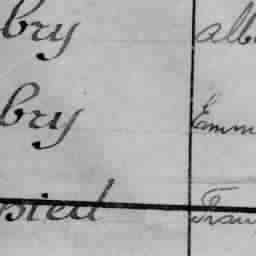 bry alb
bry Emm
pied Fran